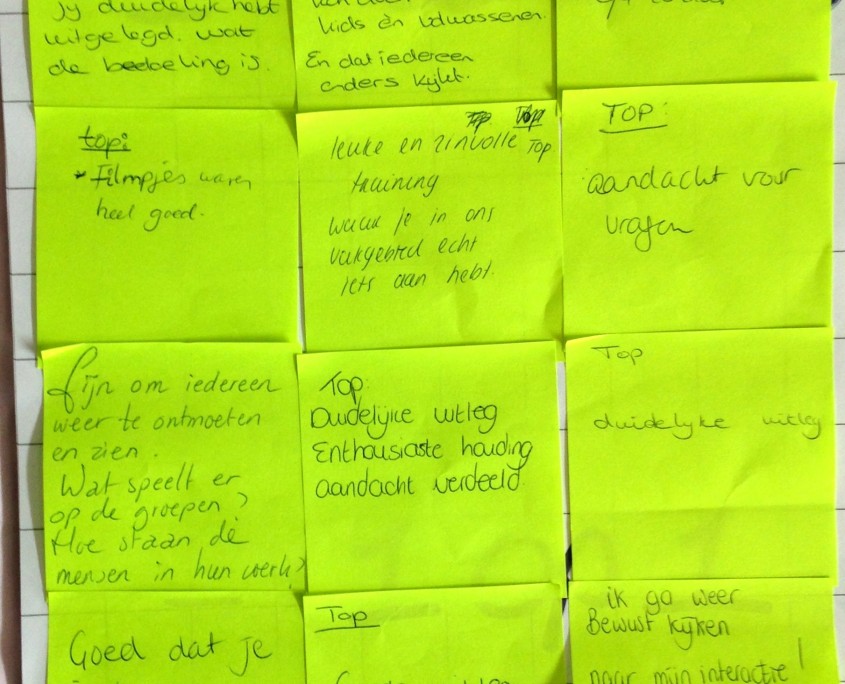 jij duidelijk hebt
uitgelegd. wat
de bedoeling is.
kids èn volwassenen.
En dat iedereen
anders kijkt.
top:
* Filmpjes waren
heel goed.
Top
leuke en zinvolle Top
training
waar je in ons
vakgebied echt
iets aan hebt.
TOP:
aandacht voor
vragen
fijn om iedereen
weer te ontmoeten
en zien.
Wat speelt er
op de groepen?
Hoe staan de
mensen in hun werk?
Top:
Duidelijke uitleg
Enthousiaste houding
aandacht verdeeld.
Top
duidelijke uitleg
Goed dat je
Top
ik ga weer
Bewust kijken
naar mijn interactie!